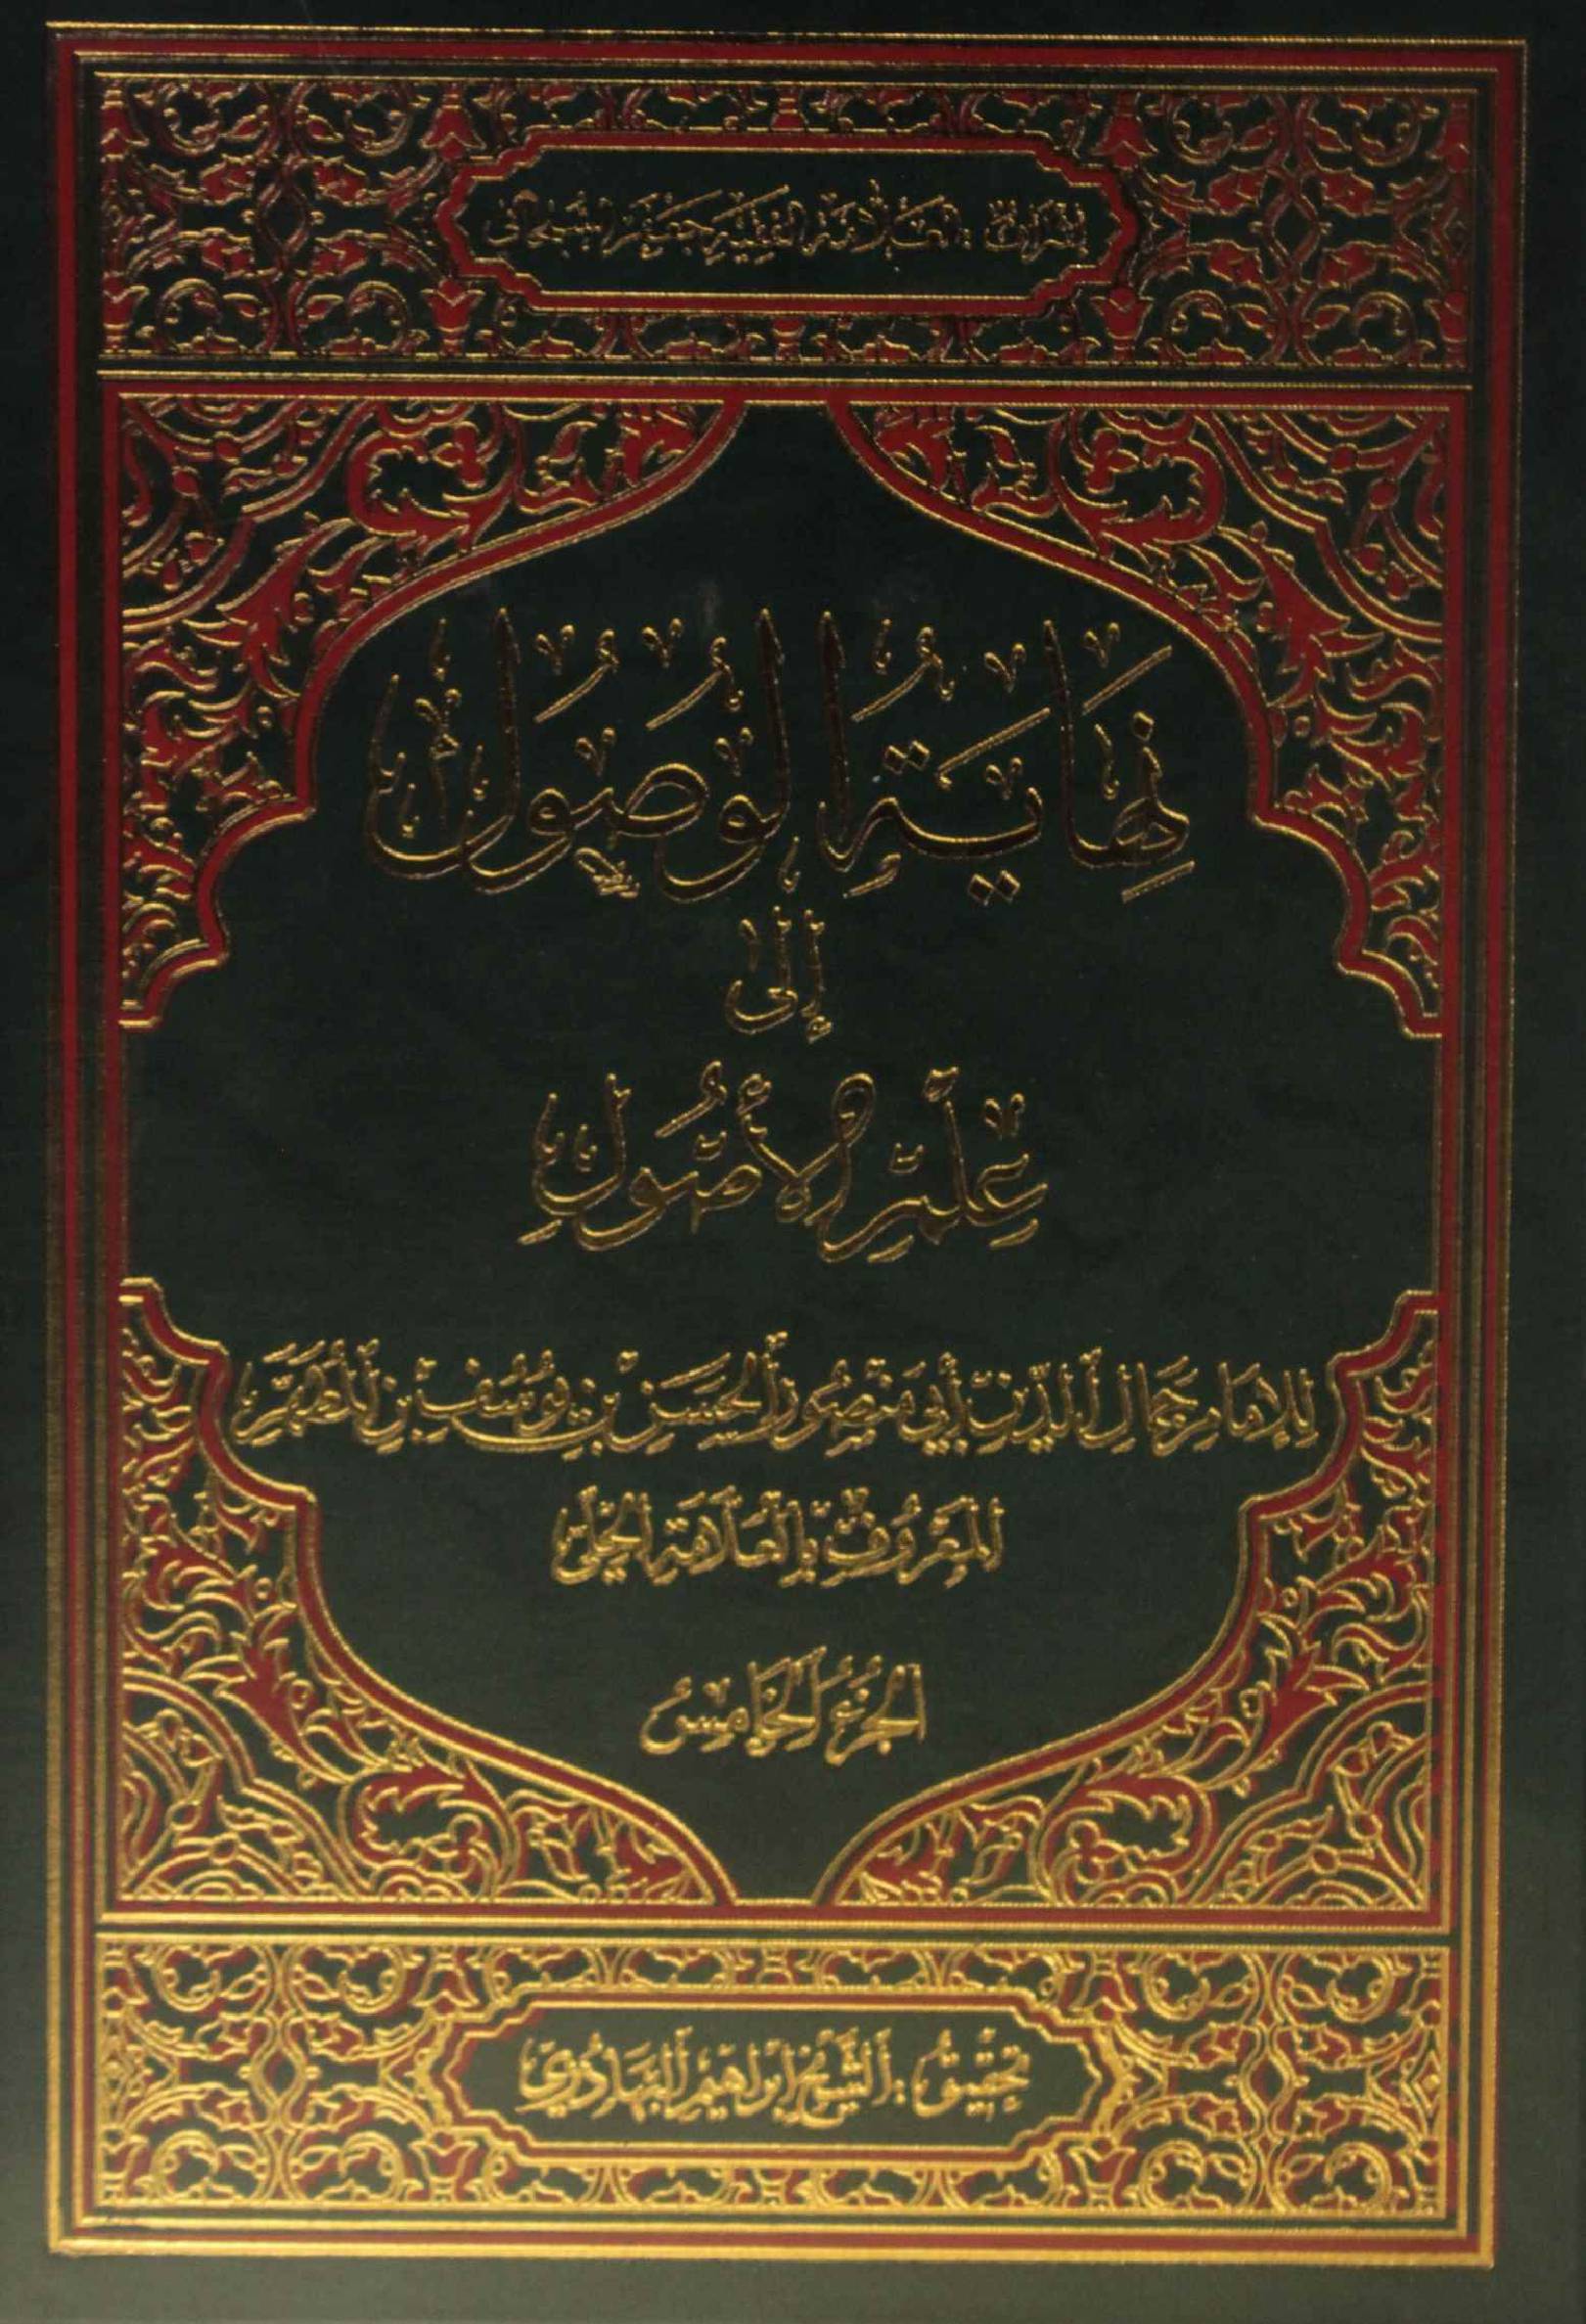 إشراف : العلامة الفقيه جعفر السبحاني
نهاية الوصول
إلى
علم الأصول
للإمام جمال الدين أبي منصور الحسن بن يوسف بن المطهر
المعروف بالعلامة الحلي
الجزء الخامس
تحقيق : الشيخ إبراهيم البهادري